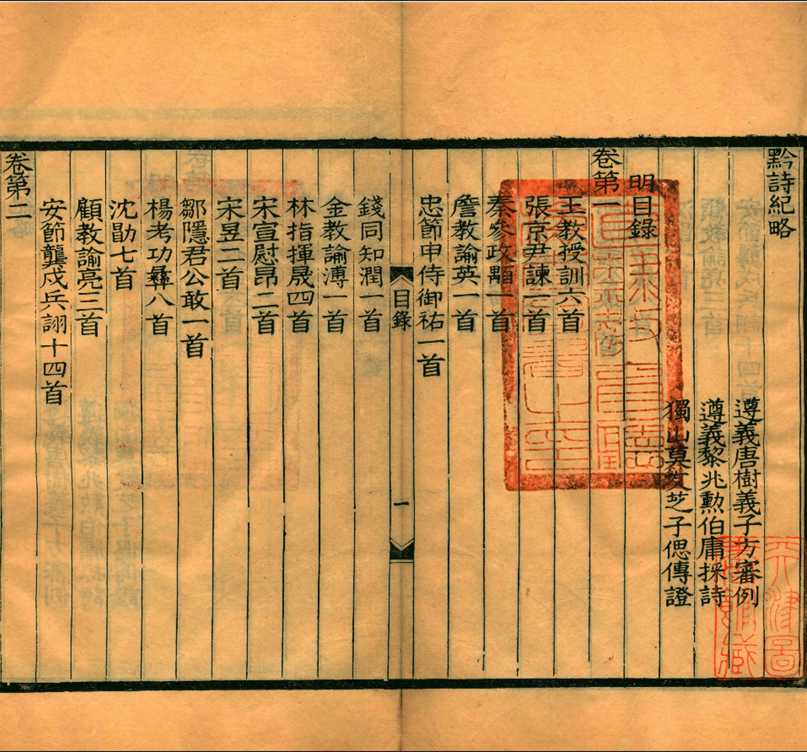 黔詩紀略
遵義唐樹義子方審例
遵義黎兆勲伯庸採詩
獨山莫友芝子偲傳證
明目錄
卷第一
王教授訓六首
張京尹諫一首
秦參政顒一首
詹教諭英一首
忠節申侍御祐一首
目錄
一
錢同知潤一首
金教諭溥一首
林指揮晟四首
宋宣慰昂二首
宋昱二首
鄒隱君公敢一首
楊考功彝八首
沈勖七首
顧教諭亮三首
安節龔戍兵詡十四首
卷第二
天津圖
書館藏